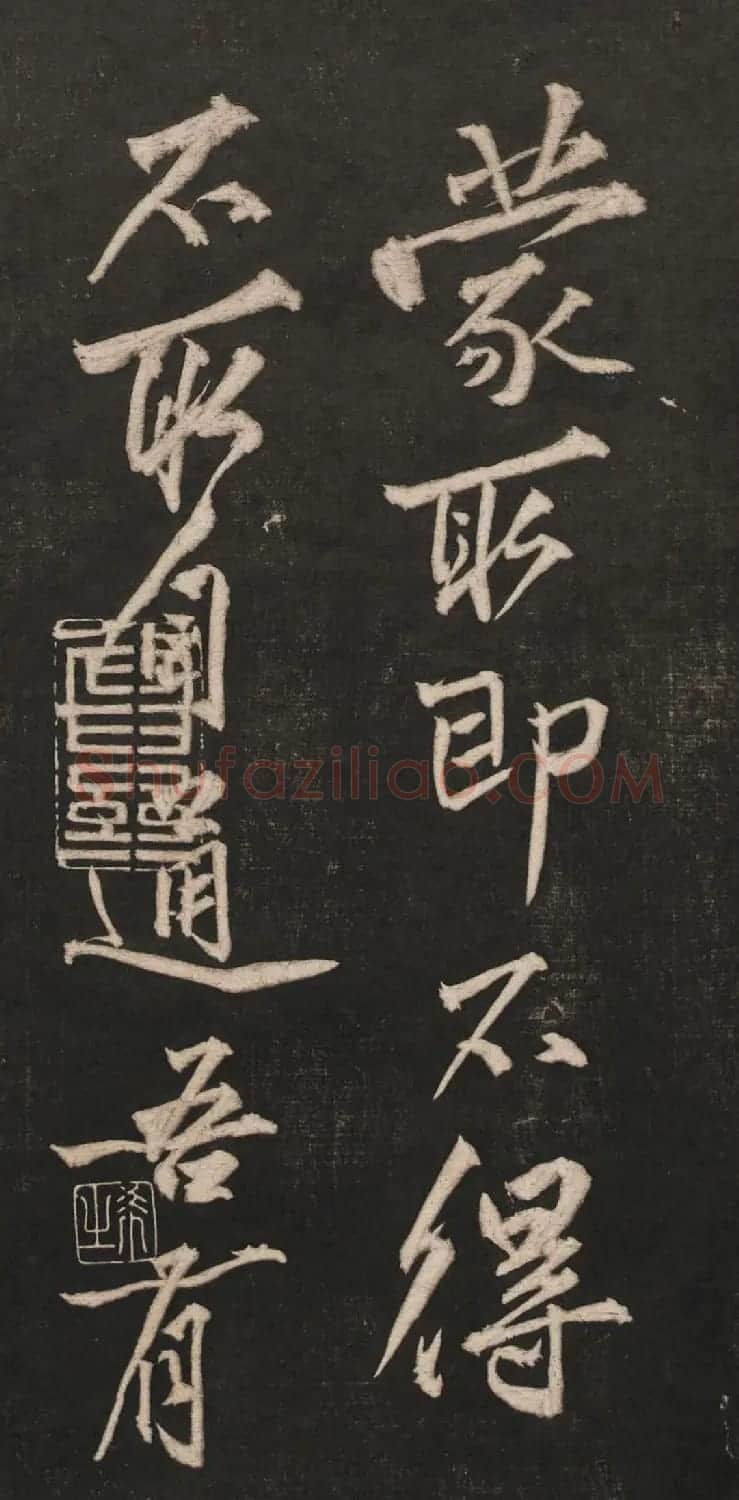 蒙取即不得
不取自通吾有
Shufaziliao.COM